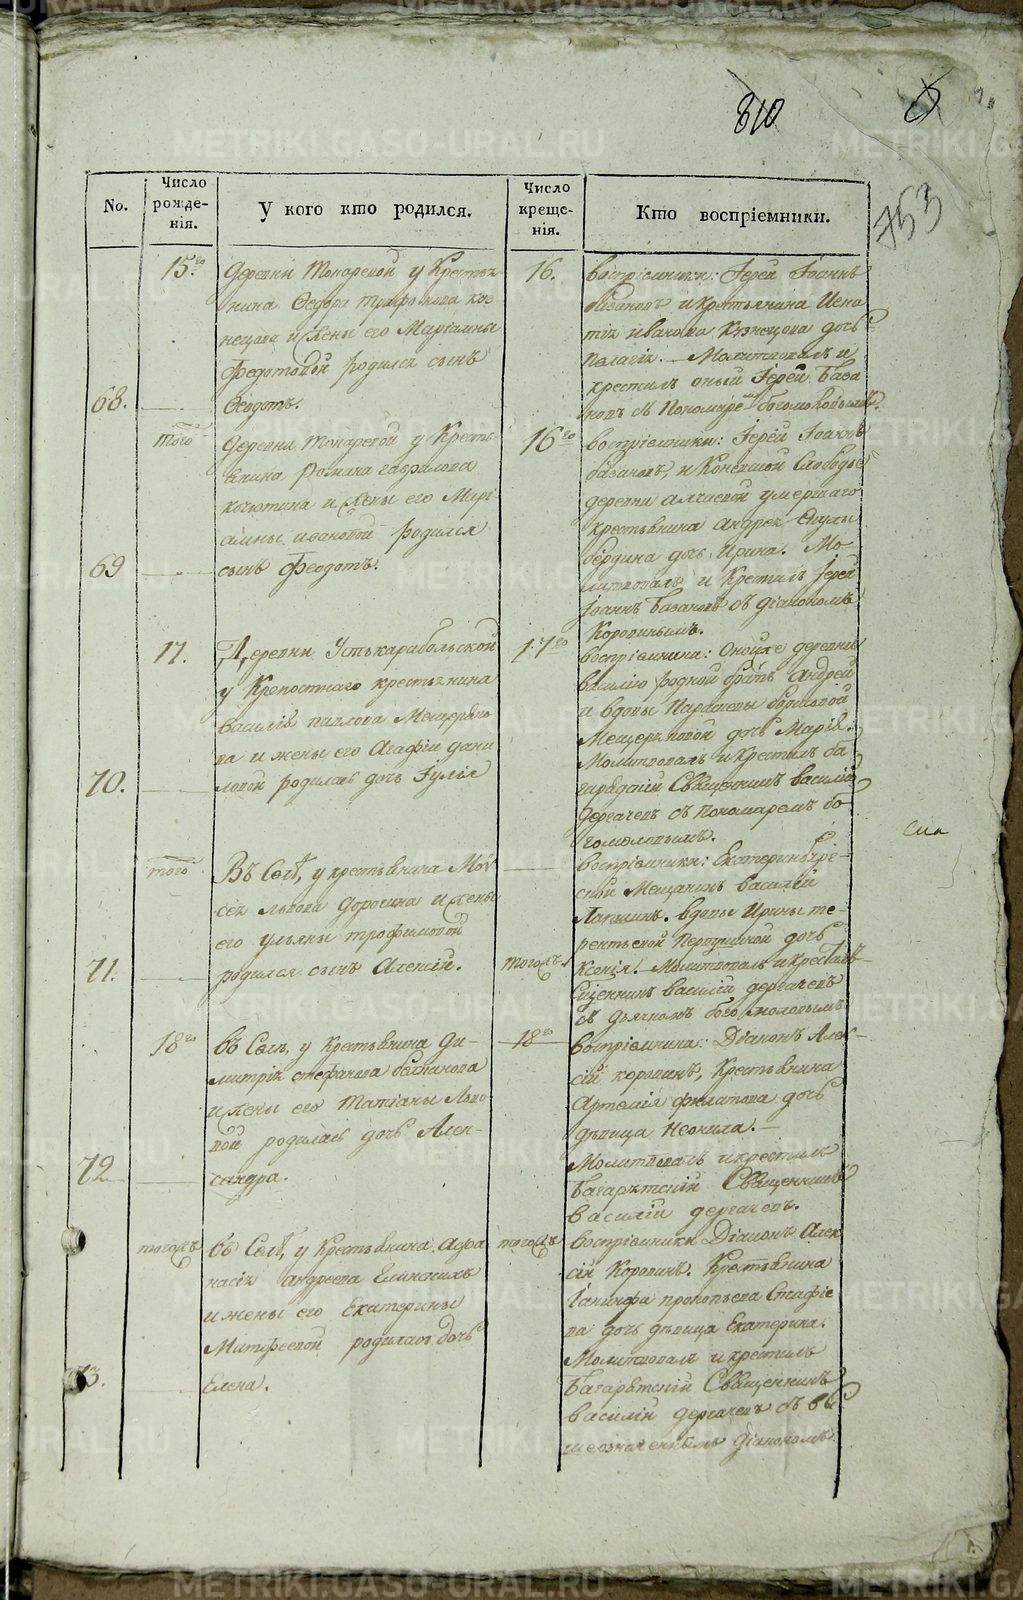 810
753
No.
Число рожде-нія.
У кого кто родился.
Число креще-нія.
Кто воспріемники.
15го
деревни Токаревой у Крестья
нина Федора трифонова куз
нецова и жены его Маріамны
Федотовой родился сынъ
68.
Феодотъ.
16.
воспріемники: Іерей Іоаннъ
базановъ и крестьянина Игна
тія иванова Кузнецова дочь
Пелагія. — Молитвовалъ и
крестилъ оный Іерей База
новъ съ Пономаремъ богомоловымъ.
того
деревни Токаревой у Кресть
янина Романа гаврилова
и жены его Марі
амны ивановой родился
69
сынъ Феодотъ.
16го
воспріемники: Іерей Іоаннъ
базановъ, и Слободы
деревни умершаго
крестьянина андрея
дочь Ирина. Мо
литвовалъ и Крестилъ Іерей
Іоаннъ Базановъ съ діакономъ
Коровинымъ.
17.
Деревни Устькарабольской
у Крепостнаго крестьянина
василія павлова Мещеряко
ва и жены его Агафіи дани
70.
ловой родилась дочь Іулія
17го
воспріемника: Оной же деревни
василію родной братъ Андрей
и вдовы Парасковьи борисовой
Мещеряковой дочь Марія.
Молитвовалъ и Крестилъ ба
гарядскій Священникъ василій
дергачевъ съ пономаремъ бо
гомоловымъ.
того
Въ Селѣ, у крестьянина Мои
сея львова дорогина и жены
его ульяны трофимовой
71.
родился сынъ Алексій.
тогожъ
воспріемники: Екатеринбург-
ской Мещанинъ василій
Лапшинъ. вдовы Ирины те-
рентьевой дочь
Ксенія. — Молитвовалъ и крестилъ
Священникъ василій дергачевъ
съ дьячкомъ богомоловымъ
18го
въ Селѣ, у Крестьянина Ди-
митрія стефанова
и жены его Татіаны Льво
вой родилась дочь Алек-
72
сандра.
18го
воспріемника: Діаконъ Алек-
сій коровинъ, Крестьянина
Артемія филатова дочь
дѣвица Неонила. —
Молитвовалъ и крестилъ
Багарятскій Священникъ
василій дергачевъ.
тогожъ
въ Селѣ, у Крестьянина Афа
насія андреева
и жены его Екатерины
Матфеевой родилась дочь
73.
Елена.
тогожъ
воспріемники Діаконъ Алек
сій Коровинъ. Крестьянина
Іакинфа прокопьева
дочь дѣвица Екатерина.
Молитвовалъ и крестилъ
Багарятскій Священникъ
василій дергачевъ съ вы
шеозначеннымъ діакономъ